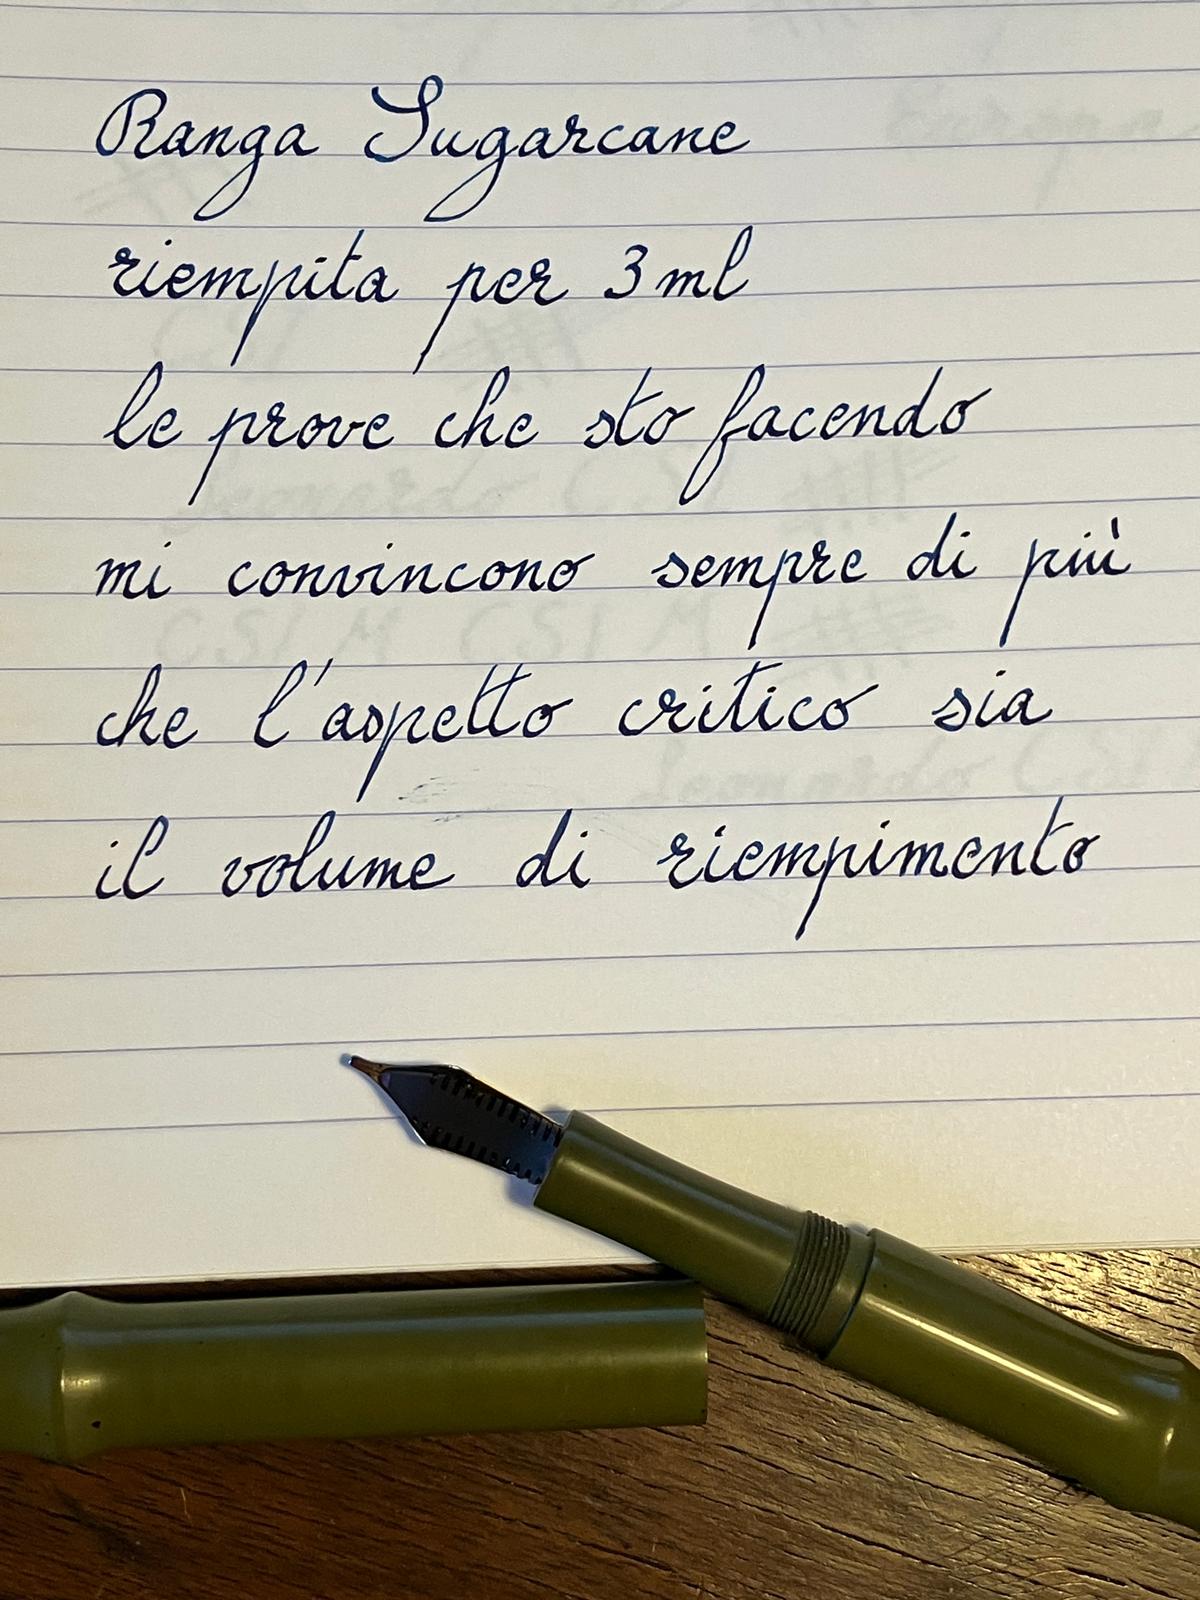 Ranga Sugarcane
riempita per 3 ml
le prove che sto facendo
mi convincono sempre di più
che l'aspetto critico sia
il volume di riempimento